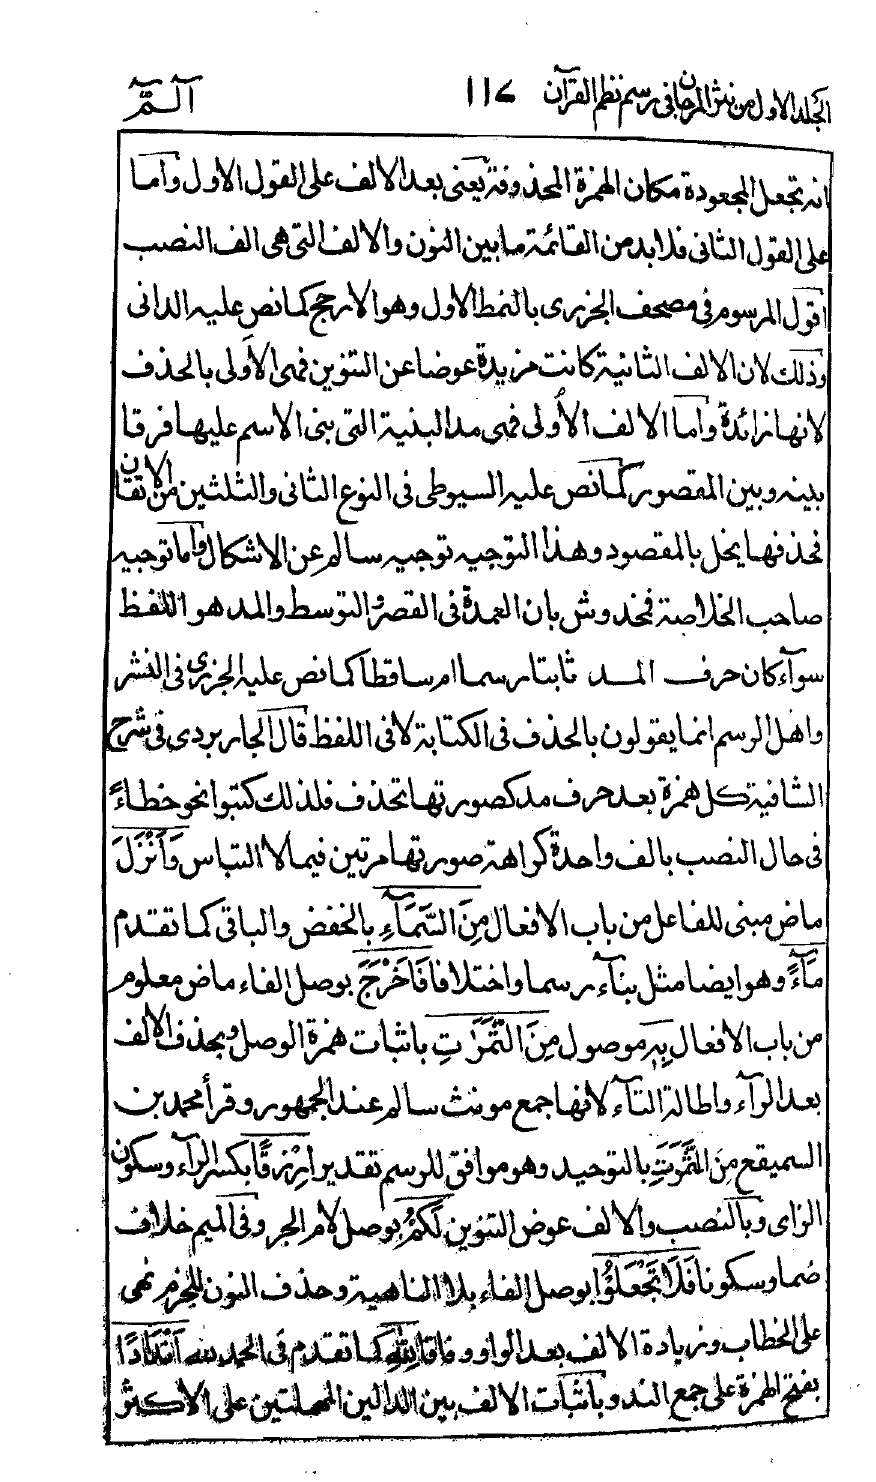 الجلد الاول من نثر المرجان فى رسم نظم القرآن ١١٧ آلـمّ
انه تجعل المجعودة مكان الهمزة المحذوفة يعنى بعد الالف على القول الاول واما
على القول الثانى فلابد من القائمة ما بين النون والالف التى هى الف النصب
اقول المرسوم فى مصحف الجزرى بالنمط الاول وهو الارجح كما نص عليه الدانى
وذلك لان الالف الثانية كانت مزيدة عوضا عن التنوين فهى الأولى بالحذف
لانها زائدة واما الالف الأولى فهى مد البنية التى بنى الاسم عليها فرقا
بينه وبين المقصور كما نص عليه السيوطى فى النوع الثانى والثلثين من الاتقان
فحذفها يخل بالمقصود وهذا التوجيه توجيه سالم عن الاشكال واما توجيه
صاحب الخلاصة فمخدوش بان العمدة فى القصر والتوسط والمد هو اللفظ
سوآء كان حرف المد ثابتا رسما ام ساقطا كما نص عليه الجزرى فى النشر
واهل الرسم انما يقولون بالحذف فى الكتابة لا فى اللفظ قال الجاربردى فى شرح
الشافية كل همزة بعد حرف مد كصورتها تحذف فلذلك كتبوا نحو خطاءً
فى حال النصب بالف واحدة كراهة صورتها مرتين فيما لا التباس وَأَنْزَلَ
ماض مبنى للفاعل من باب الافعال مِنَ السَّمَآءِ بالخفض والباقى كما تقدم
مَآءً وهو ايضا مثل بنآء رسما واختلافا فَاَخْرَجَ بوصل الفاء ماض معلوم
من باب الافعال بِهٖ موصول مِنَ الثَّمَرٰتِ باثبات همزة الوصل وبحذف الالف
بعد الرآء واطالة التآء لانها جمع مونث سالم عند الجمهور وقرأ محمد بن
السميقع مِنَ الثَّمَرَتِ بالتوحيد وهو موافق للرسم تقديرا رِزْقًا بكسر الرآء وسكون
الزاى وبالنصب والالف عوض التنوين لَكُمْ بوصل لام الجر وفى الميم خلاف
ضما وسكونا فَلَا تَجْعَلُوْا بوصل الفاء بلا الناهية وحذف النون للجزم نهى
على الخطاب وزيادة الالف بعد الواو وفاقا لِلّٰهِ كما تقدم فى الحمد لله اَنْدَادًا
بفتح الهمزة على جمع الند وباثبات الالف بين الدالين المهملتين على الاكثر